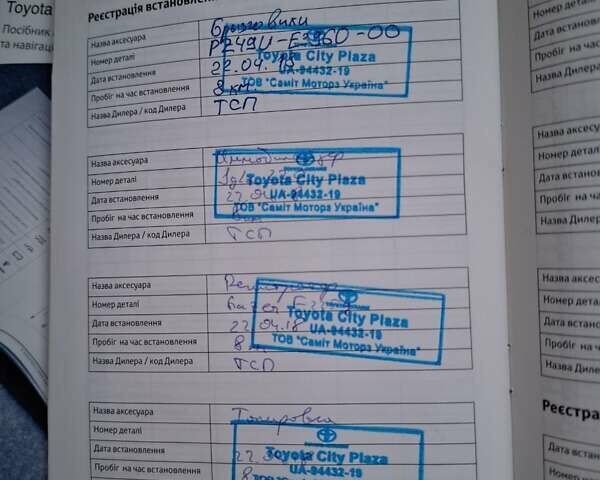 Toyota
Посібник
та навігац
Реєстрація встановлен
Назва аксесуара Брызговики
Номер деталі PZ49U-E3960-00
Дата встановлення 22.04.18
Пробіг на час встановлення 8 км
Назва Дилера / код Дилера ТСП
Toyota City Plaza
UA-94432-19
ТОВ "Саміт Моторз Україна"
Назва аксесуара
Номер деталі
Дата встановлення
Пробіг на час встановлення
Назва Дилера / код Дилера ТСП
Toyota City Plaza
UA-94432-19
ТОВ "Саміт Моторз Україна"
Назва аксесуара
Номер деталі
Дата встановлення 22.04.18
Пробіг на час встановлення
Назва Дилера / код Дилера ТСП
Toyota City Plaza
UA-94432-19
ТОВ "Саміт Моторз Україна"
Назва аксесуара Тонировка
Номер деталі
Дата встановлення
Пробіг на час встановлення
Toyota City Plaza
UA-94432-19
Номер деталі
Дата встановле
Пробіг на час в
Назва Дилера
Назва аксесу
Номер деталі
Дата встанов
Пробіг на ча
Назва Дилер
Назва аксес
Номер дета
Дата встано
Пробіг на ч
Назва Диле
Реєстра
Дата встан
Пробіг на